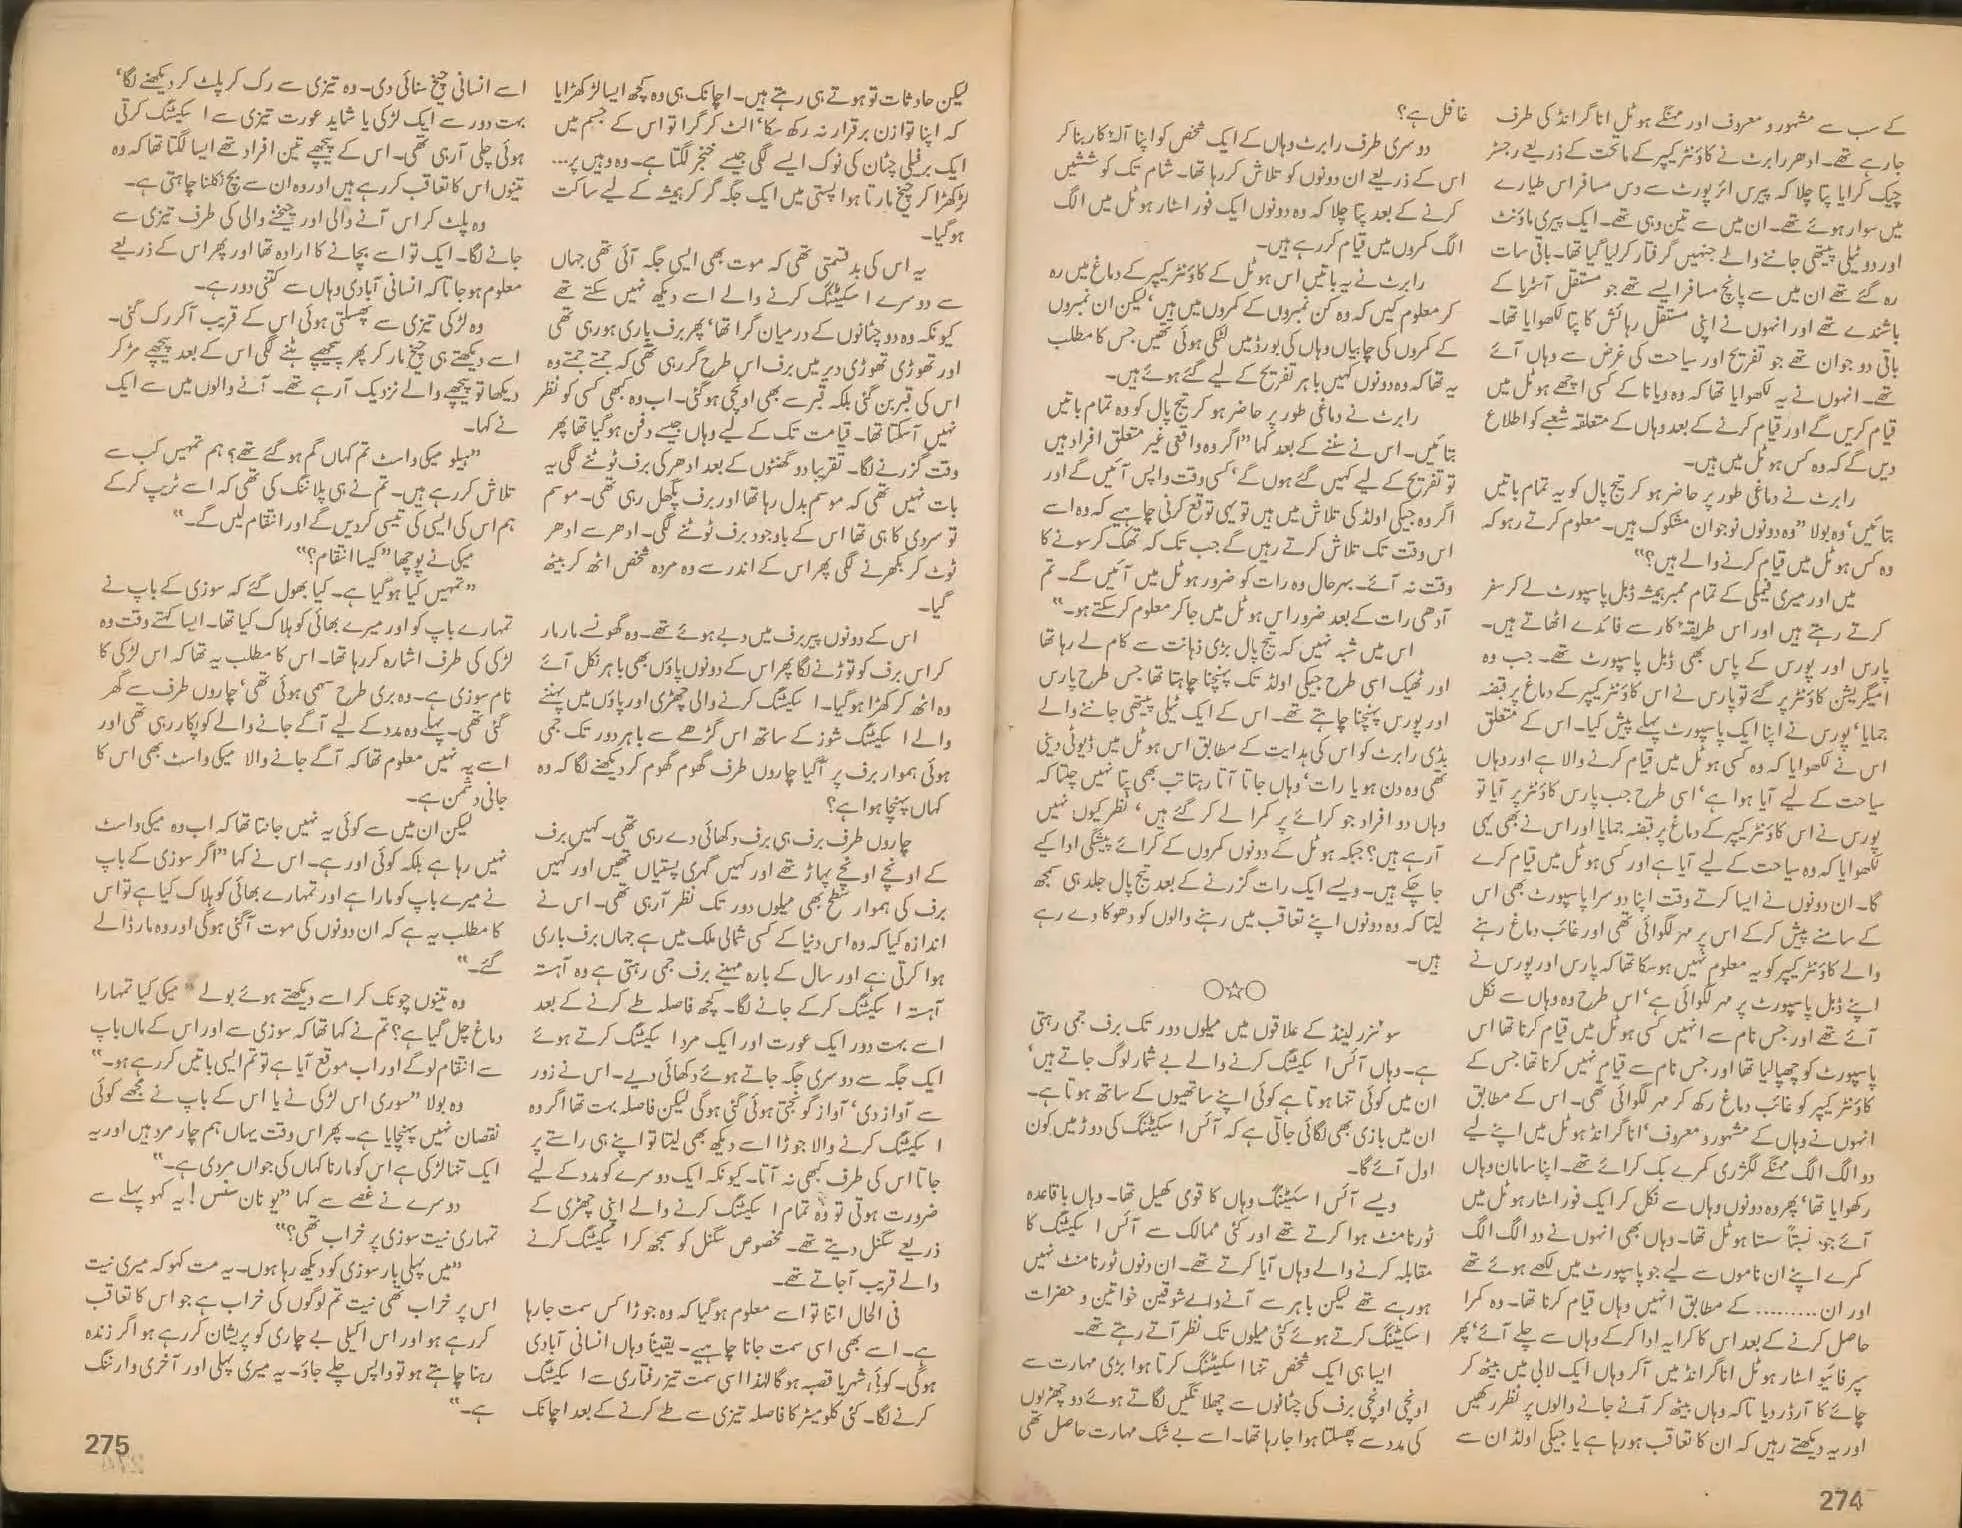 کے سب سے مشہور و معروف اور مہنگے ہوٹل انا گرانڈ کی طرف
جا رہے تھے۔ ادھر رابرٹ نے کاؤنٹر کیپر کے ماتحت کے ذریعے رجسٹر
چیک کرایا پتا چلا کہ پیرس ائر پورٹ سے دس مسافر اس طیارے
میں سوار ہوئے تھے۔ ان میں سے تین وہی تھے۔ ایک پیری ماؤنٹ
اور دو ٹیلی پیتھی جاننے والے جنہیں گرفتار کر لیا گیا تھا۔ باقی سات
رہ گئے تھے ان میں سے پانچ مسافر ایسے تھے جو مستقل آسٹریا کے
باشندے تھے اور انہوں نے اپنی مستقل رہائش کا پتا لکھوایا تھا۔
باقی دو جوان تھے جو تفریح اور سیاحت کی غرض سے وہاں آئے
تھے۔ انہوں نے یہ لکھوایا تھا کہ وہ ویانا کے کسی اچھے ہوٹل میں
قیام کریں گے اور قیام کرنے کے بعد وہاں کے متعلقہ شعبے کو اطلاع
دیں گے کہ وہ کس ہوٹل میں ہیں۔
رابرٹ نے دماغی طور پر حاضر ہو کر تیج پال کو یہ تمام باتیں
بتائیں‘ وہ بولا ”وہ دونوں نوجوان مشکوک ہیں۔ معلوم کرتے رہو کہ
وہ کس ہوٹل میں قیام کرنے والے ہیں؟“
میں اور میری فیملی کے تمام ممبر ہمیشہ ڈبل پاسپورٹ لے کر سفر
کرتے رہتے ہیں اور اس طریقۂ کار سے فائدے اٹھاتے ہیں۔
پارس اور پورس کے پاس بھی ڈبل پاسپورٹ تھے۔ جب وہ
امیگریشن کاؤنٹر پر گئے تو پارس نے اس کاؤنٹر کیپر کے دماغ پر قبضہ
جمایا‘ پورس نے اپنا ایک پاسپورٹ پہلے پیش کیا۔ اس کے متعلق
اس نے لکھوایا کہ وہ کسی ہوٹل میں قیام کرنے والا ہے اور وہاں
سیاحت کے لیے آیا ہوا ہے‘ اسی طرح جب پارس کاؤنٹر پر آیا تو
پورس نے اس کاؤنٹر کیپر کے دماغ پر قبضہ جمایا اور اس نے بھی یہی
لکھوایا کہ وہ سیاحت کے لیے آیا ہے اور کسی ہوٹل میں قیام کرے
گا۔ ان دونوں نے ایسا کرتے وقت اپنا دوسرا پاسپورٹ بھی اس
کے سامنے پیش کر کے اس پر مہر لگوائی تھی اور غائب دماغ رہنے
والے کاؤنٹر کیپر کو یہ معلوم نہیں ہو سکا تھا کہ پارس اور پورس نے
اپنے ڈبل پاسپورٹ پر مہر لگوائی ہے‘ اس طرح وہ وہاں سے نکل
آئے تھے اور جس نام سے انہیں کسی ہوٹل میں قیام کرنا تھا اس
پاسپورٹ کو چھپا لیا تھا اور جس نام سے قیام نہیں کرنا تھا جس کے
کاؤنٹر کیپر کو غائب دماغ رکھ کر مہر لگوائی تھی۔ اس کے مطابق
انہوں نے وہاں کے مشہور و معروف‘ انا گرانڈ ہوٹل میں اپنے لیے
دو الگ الگ مہنگے لگژری کمرے بک کرائے تھے۔ اپنا سامان وہاں
رکھوایا تھا‘ پھر وہ دونوں وہاں سے نکل کر ایک فور اسٹار ہوٹل میں
آئے جو، نسبتاً سستا ہوٹل تھا۔ وہاں بھی انہوں نے دو الگ الگ
کمرے اپنے ان ناموں سے لیے جو پاسپورٹ میں لکھے ہوئے تھے
اور ان ......... کے مطابق انہیں وہاں قیام کرنا تھا۔ وہ کمرا
حاصل کرنے کے بعد اس کا کرایہ ادا کر کے وہاں سے چلے آئے‘ پھر
سپر فائیو اسٹار ہوٹل انا گرانڈ میں آ کر وہاں ایک لابی میں بیٹھ کر
چائے کا آرڈر دیا تاکہ وہاں بیٹھ کر آنے جانے والوں پر نظر رکھیں
اور یہ دیکھتے رہیں کہ ان کا تعاقب ہو رہا ہے یا جیکی اولڈ ان سے
غافل ہے؟
دوسری طرف رابرٹ وہاں کے ایک شخص کو اپنا آلۂ کار بنا کر
اس کے ذریعے ان دونوں کو تلاش کر رہا تھا۔ شام تک کوششیں
کرنے کے بعد پتا چلا کہ وہ دونوں ایک فور اسٹار ہوٹل میں الگ
الگ کمروں میں قیام کر رہے ہیں۔
رابرٹ نے یہ باتیں اس ہوٹل کے کاؤنٹر کیپر کے دماغ میں رہ
کر معلوم کیں کہ وہ کن نمبروں کے کمروں میں ہیں‘ لیکن ان نمبروں
کے کمروں کی چابیاں وہاں کی بورڈ میں لٹکی ہوئی تھیں جس کا مطلب
یہ تھا کہ وہ دونوں کہیں باہر تفریح کے لیے گئے ہوئے ہیں۔
رابرٹ نے دماغی طور پر حاضر ہو کر تیج پال کو وہ تمام باتیں
بتائیں۔ اس نے سننے کے بعد کہا ”اگر وہ واقعی غیر متعلق افراد ہیں
تو تفریح کے لیے کہیں گئے ہوں گے‘ کسی وقت واپس آئیں گے اور
اگر وہ جیکی اولڈ کی تلاش میں ہیں تو یہی توقع کرنی چاہیے کہ وہ اسے
اس وقت تک تلاش کرتے رہیں گے جب تک کہ تھک کر سونے کا
وقت نہ آئے۔ بہرحال وہ رات کو ضرور ہوٹل میں آئیں گے۔ تم
آدھی رات کے بعد ضرور اس ہوٹل میں جا کر معلوم کر سکتے ہو۔“
اس میں شبہ نہیں کہ تیج پال بڑی ذہانت سے کام لے رہا تھا
اور ٹھیک اسی طرح جیکی اولڈ تک پہنچنا چاہتا تھا جس طرح پارس
اور پورس پہنچنا چاہتے تھے۔ اس کے ایک ٹیلی پیتھی جاننے والے
بڈی رابرٹ کو اس کی ہدایت کے مطابق اس ہوٹل میں ڈیوٹی دینی
تھی وہ دن ہو یا رات‘ وہاں جاتا آتا رہتا تب بھی پتا نہیں چلتا کہ
وہاں دو افراد جو کرائے پر کمرا لے کر گئے ہیں‘ نظر کیوں نہیں
آ رہے ہیں؟ جبکہ ہوٹل کے دونوں کمروں کے کرائے پیشگی ادا کیے
جا چکے ہیں۔ ویسے ایک رات گزرنے کے بعد تیج پال جلد ہی سمجھ
لیتا کہ وہ دونوں اپنے تعاقب میں رہنے والوں کو دھوکا دے رہے
ہیں۔
○☆○
سوئٹزر لینڈ کے علاقوں میں میلوں دور تک برف جمی رہتی
ہے۔ وہاں آئس اسکیٹنگ کرنے والے بے شمار لوگ جاتے ہیں‘
ان میں کوئی تنہا ہوتا ہے کوئی اپنے ساتھیوں کے ساتھ ہوتا ہے۔
ان میں بازی بھی لگائی جاتی ہے کہ آئس اسکیٹنگ کی دوڑ میں کون
اول آئے گا۔
ویسے آئس اسکیٹنگ وہاں کا قومی کھیل تھا۔ وہاں باقاعدہ
ٹورنامنٹ ہوا کرتے تھے اور کئی ممالک سے آئس اسکیٹنگ کا
مقابلہ کرنے والے وہاں آیا کرتے تھے۔ ان دنوں ٹورنامنٹ نہیں
ہو رہے تھے لیکن باہر سے آنے والے شوقین خواتین و حضرات
اسکیٹنگ کرتے ہوئے کئی میلوں تک نظر آتے رہتے تھے۔
ایسا ہی ایک شخص تنہا اسکیٹنگ کرتا ہوا بڑی مہارت سے
اونچی اونچی برف کی چٹانوں سے چھلانگیں لگاتے ہوئے دو چھڑیوں
کی مدد سے پھسلتا ہوا جا رہا تھا۔ اسے بے شک مہارت حاصل تھی
274
لیکن حادثات تو ہوتے ہی رہتے ہیں۔ اچانک ہی وہ کچھ ایسا لڑکھڑایا
کہ اپنا توازن برقرار نہ رکھ سکا‘ الٹ کر گرا تو اس کے جسم میں
ایک برفیلی چٹان کی نوک ایسے لگی جیسے خنجر لگتا ہے۔ وہ وہیں پر...
لڑکھڑا کر چیخ مارتا ہوا پستی میں ایک جگہ گر کر ہمیشہ کے لیے ساکت
ہو گیا۔
یہ اس کی بدقسمتی تھی کہ موت بھی ایسی جگہ آئی تھی جہاں
سے دوسرے اسکیٹنگ کرنے والے اسے دیکھ نہیں سکتے تھے
کیونکہ وہ دو چٹانوں کے درمیان گرا تھا‘ پھر برف باری ہو رہی تھی
اور تھوڑی تھوڑی دیر میں برف اس طرح گر رہی تھی کہ جمتے جمتے وہ
اس کی قبر بن گئی بلکہ قبر سے بھی اونچی ہو گئی۔ اب وہ کبھی کسی کو نظر
نہیں آ سکتا تھا۔ قیامت تک کے لیے وہاں جیسے دفن ہو گیا تھا پھر
وقت گزرنے لگا۔ تقریباً دو گھنٹوں کے بعد ادھر کی برف ٹوٹنے لگی یہ
بات نہیں تھی کہ موسم بدل رہا تھا اور برف پگھل رہی تھی۔ موسم
تو سردی کا ہی تھا اس کے باوجود برف ٹوٹنے لگی۔ ادھر سے ادھر
ٹوٹ کر بکھرنے لگی پھر اس کے اندر سے وہ مردہ شخص اٹھ کر بیٹھ
گیا۔
اس کے دونوں پیر برف میں دبے ہوئے تھے۔ وہ گھونسے مار مار
کر اس برف کو توڑنے لگا پھر اس کے دونوں پاؤں بھی باہر نکل آئے
وہ اٹھ کر کھڑا ہو گیا۔ اسکیٹنگ کرنے والی چھڑی اور پاؤں میں پہنے
والے اسکیٹنگ شوز کے ساتھ اس گڑھے سے باہر دور تک جمی
ہوئی ہموار برف پر آ گیا چاروں طرف گھوم گھوم کر دیکھنے لگا کہ وہ
کہاں پہنچا ہوا ہے؟
چاروں طرف برف ہی برف دکھائی دے رہی تھی۔ کہیں برف
کے اونچے اونچے پہاڑ تھے اور کہیں گہری پستیاں تھیں اور کہیں
برف کی ہموار سطح بھی میلوں دور تک نظر آ رہی تھی۔ اس نے
اندازہ کیا کہ وہ اس دنیا کے کسی شمالی ملک میں ہے جہاں برف باری
ہوا کرتی ہے اور سال کے بارہ مہینے برف جمی رہتی ہے وہ آہستہ
آہستہ اسکیٹنگ کر کے جانے لگا۔ کچھ فاصلہ طے کرنے کے بعد
اسے بہت دور ایک عورت اور ایک مرد اسکیٹنگ کرتے ہوئے
ایک جگہ سے دوسری جگہ جاتے ہوئے دکھائی دیے۔ اس نے زور
سے آواز دی‘ آواز گونجتی ہوئی گئی ہوگی لیکن فاصلہ بہت تھا اگر وہ
اسکیٹنگ کرنے والا جوڑا اسے دیکھ بھی لیتا تو اپنے ہی راستے پر
جاتا اس کی طرف کبھی نہ آتا۔ کیونکہ ایک دوسرے کو مدد کے لیے
ضرورت ہوتی تو وہ تمام اسکیٹنگ کرنے والے اپنی چھڑی کے
ذریعے سگنل دیتے تھے۔ مخصوص سگنل کو سمجھ کر اسکیٹنگ کرنے
والے قریب آ جاتے تھے۔
فی الحال اتنا تو اسے معلوم ہو گیا کہ وہ جوڑا کس سمت جا رہا
ہے۔ اسے بھی اسی سمت جانا چاہیے۔ یقیناً وہاں انسانی آبادی
ہوگی۔ کوئی شہر یا قصبہ ہوگا لہٰذا اسی سمت تیز رفتاری سے اسکیٹنگ
کرنے لگا۔ کئی کلومیٹر کا فاصلہ تیزی سے طے کرنے کے بعد اچانک
اسے انسانی چیخ سنائی دی۔ وہ تیزی سے رک کر پلٹ کر دیکھنے لگا‘
بہت دور سے ایک لڑکی یا شاید عورت تیزی سے اسکیٹنگ کرتی
ہوئی چلی آ رہی تھی۔ اس کے پیچھے تین افراد تھے ایسا لگتا تھا کہ وہ
تینوں اس کا تعاقب کر رہے ہیں اور وہ ان سے بچ نکلنا چاہتی ہے۔
وہ پلٹ کر اس آنے والی اور چیخنے والی کی طرف تیزی سے
جانے لگا۔ ایک تو اسے بچانے کا ارادہ تھا اور پھر اس کے ذریعے
معلوم ہو جاتا کہ انسانی آبادی وہاں سے کتنی دور ہے۔
وہ لڑکی تیزی سے پھسلتی ہوئی اس کے قریب آ کر رک گئی۔
اسے دیکھتے ہی چیخ مار کر پھر پیچھے ہٹنے لگی اس کے بعد پیچھے مڑ کر
دیکھا تو پیچھے والے نزدیک آ رہے تھے۔ آنے والوں میں سے ایک
نے کہا۔
”ہیلو میکی واسٹ تم کہاں گم ہو گئے تھے؟ ہم تمہیں کب سے
تلاش کر رہے ہیں۔ تم نے ہی پلاننگ کی تھی کہ اسے ٹریپ کر کے
ہم اس کی ایسی کی تیسی کر دیں گے اور انتقام لیں گے۔“
میکی نے پوچھا ”کیسا انتقام؟“
”تمہیں کیا ہو گیا ہے۔ کیا بھول گئے کہ سوزی کے باپ نے
تمہارے باپ کو اور میرے بھائی کو ہلاک کیا تھا۔ ایسا کہتے وقت وہ
لڑکی کی طرف اشارہ کر رہا تھا۔ اس کا مطلب یہ تھا کہ اس لڑکی کا
نام سوزی ہے۔ وہ بری طرح سہمی ہوئی تھی‘ چاروں طرف سے گھر
گئی تھی۔ پہلے وہ مدد کے لیے آگے جانے والے کو پکار رہی تھی اور
اسے یہ نہیں معلوم تھا کہ آگے جانے والا میکی واسٹ بھی اس کا
جانی دشمن ہے۔
لیکن ان میں سے کوئی یہ نہیں جانتا تھا کہ اب وہ میکی واسٹ
نہیں رہا ہے بلکہ کوئی اور ہے۔ اس نے کہا ”اگر سوزی کے باپ
نے میرے باپ کو مارا ہے اور تمہارے بھائی کو ہلاک کیا ہے تو اس
کا مطلب یہ ہے کہ ان دونوں کی موت آ گئی ہوگی اور وہ مار ڈالے
گئے۔“
وہ تینوں چونک کر اسے دیکھتے ہوئے بولے ”میکی کیا تمہارا
دماغ چل گیا ہے؟ تم نے کہا تھا کہ سوزی سے اور اس کے ماں باپ
سے انتقام لو گے اور اب موقع آیا ہے تو تم ایسی باتیں کر رہے ہو۔“
وہ بولا ”سوری اس لڑکی نے یا اس کے باپ نے مجھے کوئی
نقصان نہیں پہنچایا ہے۔ پھر اس وقت یہاں ہم چار مرد ہیں اور یہ
ایک تنہا لڑکی ہے اس کو مارنا کہاں کی جواں مردی ہے۔“
دوسرے نے غصے سے کہا ”یو نان سنس! یہ کہو پہلے سے
تمہاری نیت سوزی پر خراب تھی؟“
”میں پہلی بار سوزی کو دیکھ رہا ہوں۔ یہ مت کہو کہ میری نیت
اس پر خراب تھی نیت تم لوگوں کی خراب ہے جو اس کا تعاقب
کر رہے ہو اور اس اکیلی بے چاری کو پریشان کر رہے ہو اگر زندہ
رہنا چاہتے ہو تو واپس چلے جاؤ۔ یہ میری پہلی اور آخری وارننگ
ہے۔“
275